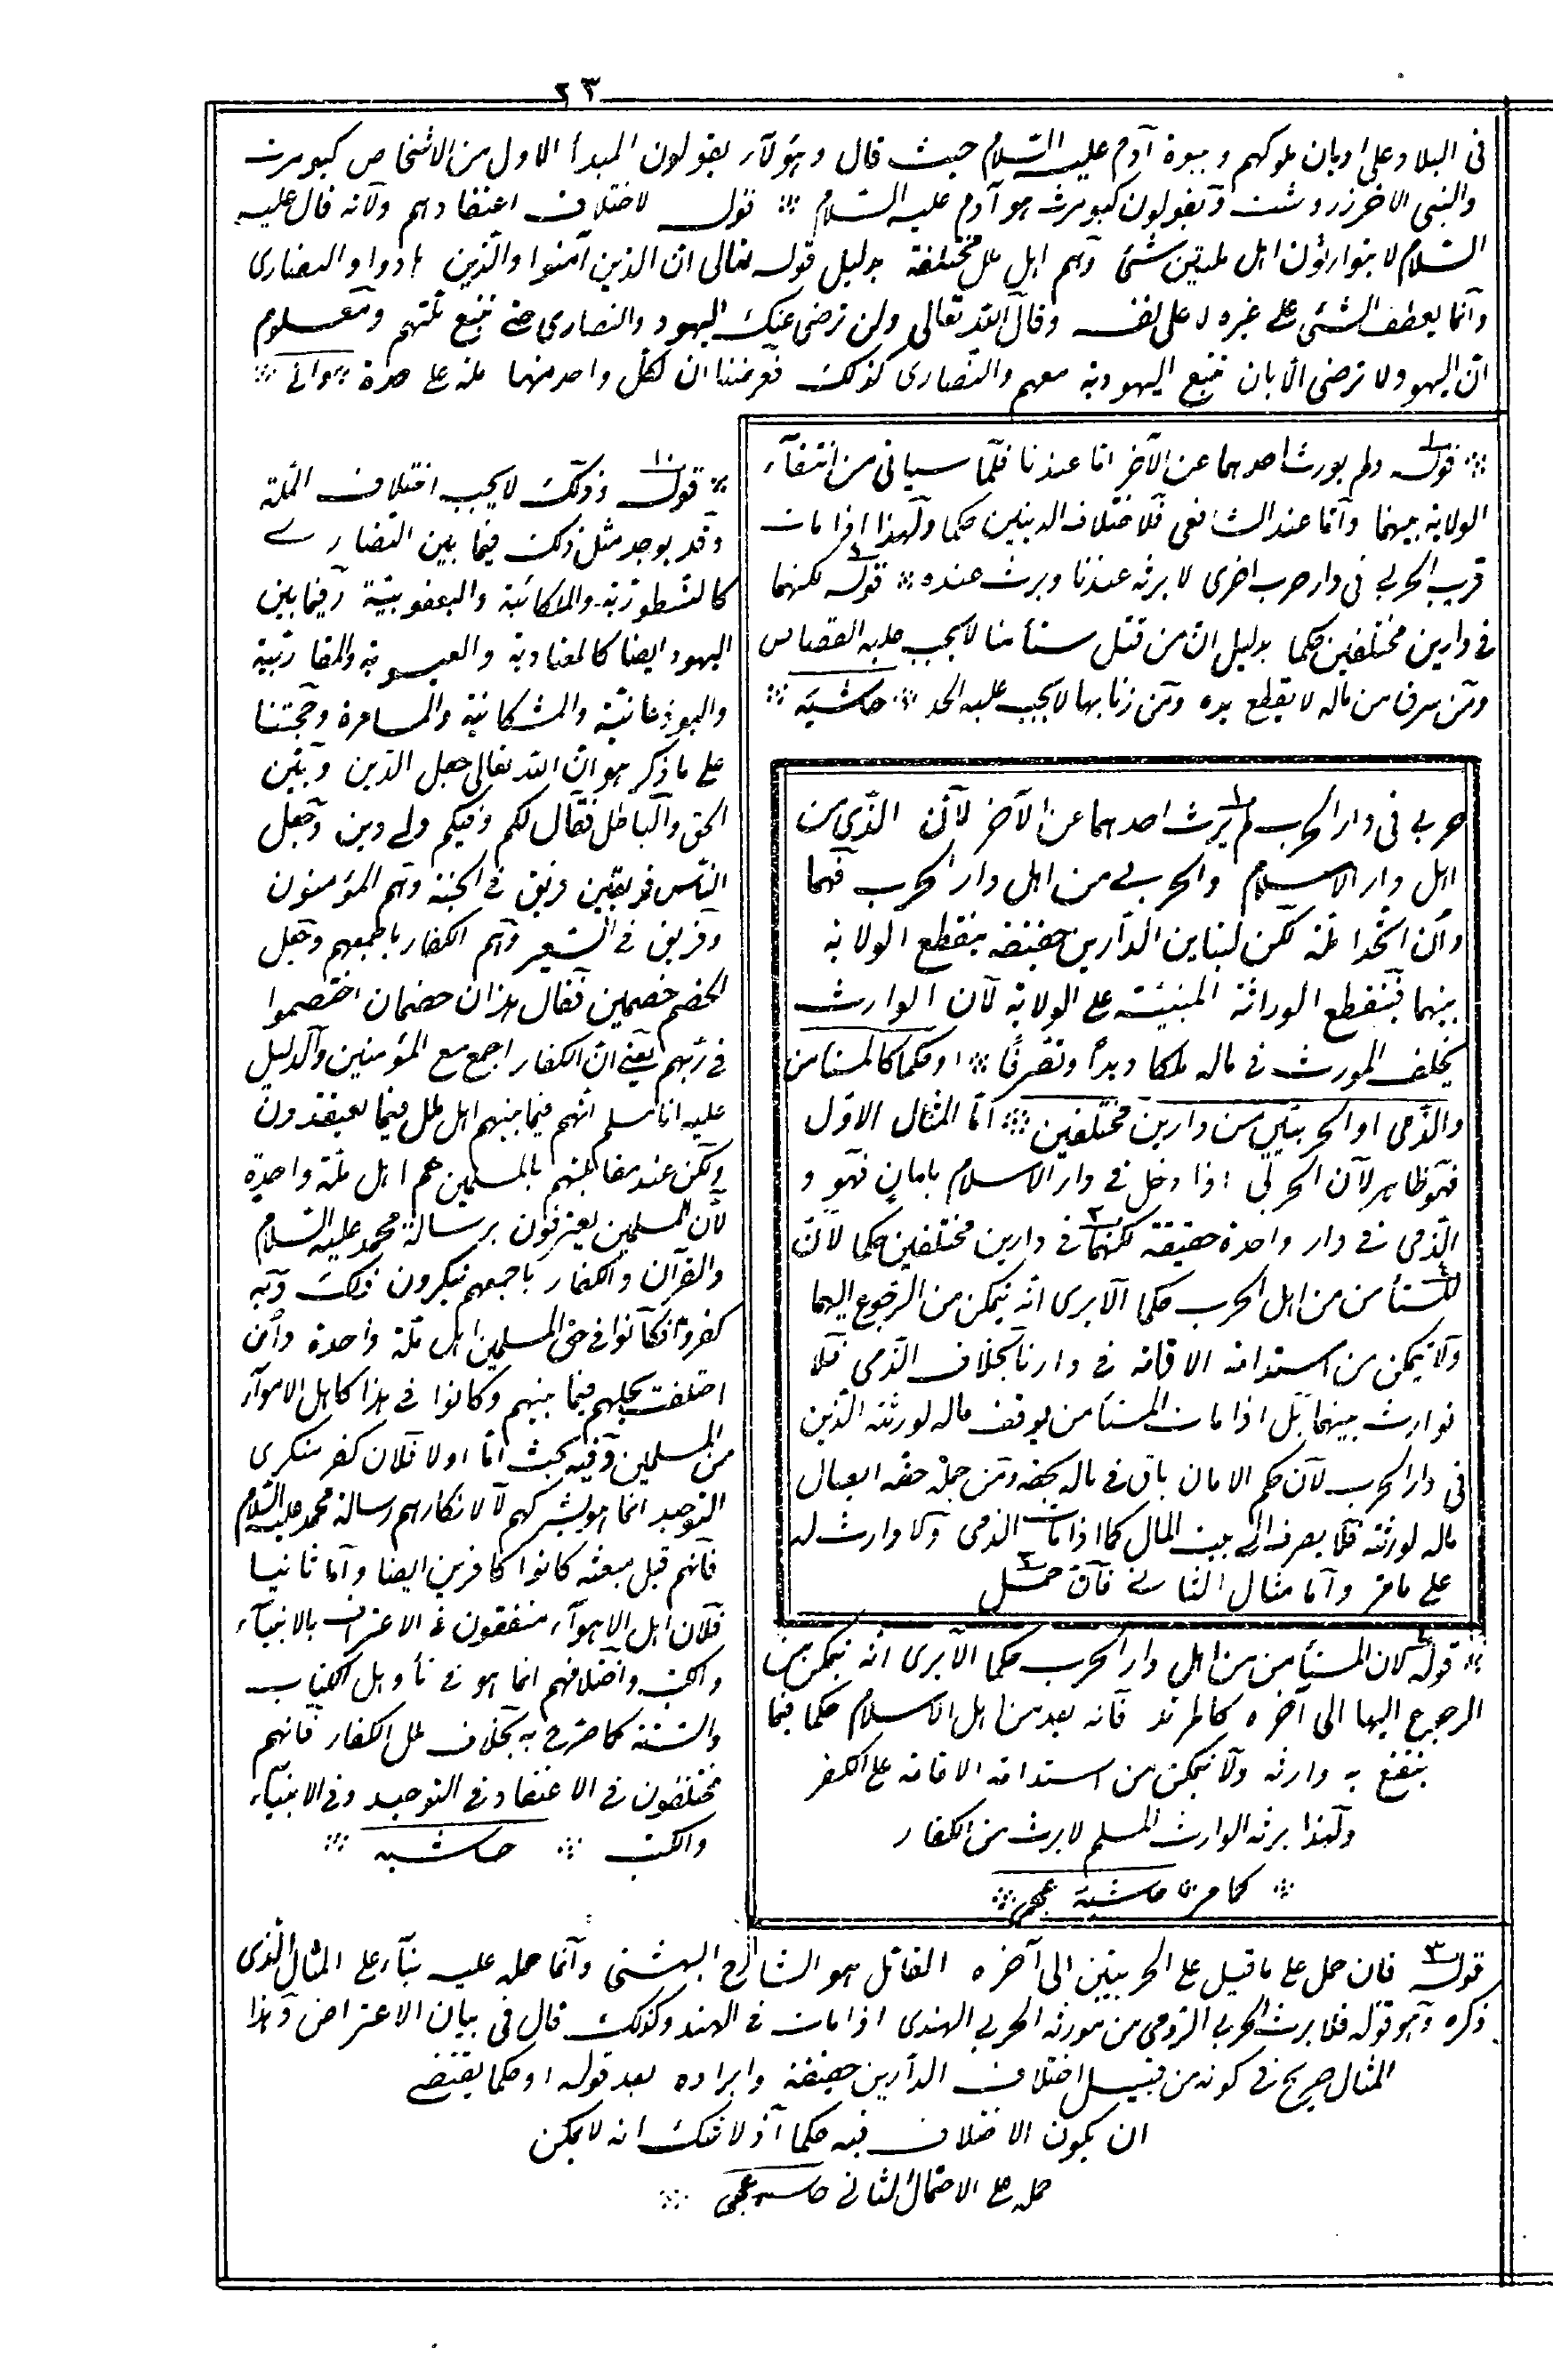 ٢٣
فى البلاد وعلى اديان ملوكهم وبنبوة آدم عليه السلام حيث قال وهؤلاء يقولون المبدأ الاول من الاشخاص كيومرث
والنبى الآخر زردشت ويقولون كيومرث هو آدم عليه السلام قوله لاختلاف اعتقادهم ولانه قال عليه
السلام لا يتوارثون اهل ملتين شئ وهم اهل ملل مختلفة بدليل قوله تعالى ان الذين آمنوا والذين هادوا والنصارى
وانما يعطف الشئ على غيره لا على نفسه وقال الله تعالى ولن ترضى عنك اليهود والنصارى حتى تتبع ملتهم ومعلوم
ان اليهود لا ترضى الا بان تتبع اليهودية معهم والنصارى كذلك فعرفنا ان لكل واحد منهما ملة على حدة
قوله ولم يورث احدهما عن الآخر اما عندنا فلما سيأتى من انتفاء
الولاية بينهما واما عند الشافعى فلاختلاف الدينين حكما ولهذا اذا مات
قريب الحربى فى دار حرب اخرى لا يرثه عندنا ويرث عنده قوله لكنهما
فى دارين مختلفين حكما بدليل ان من قتل مستأمنا لا يجب عليه القصاص
ومن سرق من ماله لا يقطع يده ومن زنا بها لا يجب عليه الحد حاشيه
حربى فى دار الحرب لم يرث احدهما عن الآخر لان الذمى من
اهل دار الاسلام والحربى من اهل دار الحرب فهما
وان اتحدا ملة لكن لتباين الدارين حقيقة ينقطع الولاية
بينهما فينقطع الوراثة المبنية على الولاية لان الوارث
يخلف المورث فى ماله ملكا ويدا وتصرفا او حكما كالمستأمن
والذمى او الحربيين من دارين مختلفين اما المثال الاول
فهو ظاهر لان الحربى اذا دخل فى دار الاسلام بامان فهو و
الذمى فى دار واحدة حقيقة لكنهما فى دارين مختلفين حكما لان
المستأمن من اهل الحرب حكما الا يرى انه يتمكن من الرجوع اليها
ولا يتمكن من استدامة الاقامة فى دارنا بخلاف الذمى فلا
توارث بينهما بل اذا مات المستأمن يوقف ماله لورثته الذين
فى دار الحرب لان حكم الامان باق فى ماله بحقه ومن جملة حقه ايصال
ماله لورثته فلا يصرف الى بيت المال كما اذا مات الذمى ولا وارث له
على ما مر واما مثال الثانى فان حمل
قوله لان المستأمن من اهل دار الحرب حكما الا يرى انه يتمكن من
الرجوع اليها الى آخره كالمرتد فانه يعد من اهل الاسلام حكما فيما
ينتفع به وارثه ولا يتمكن من استدامة الاقامة على الكفر
ولهذا يرثه الوارث المسلم لا يرث من الكفار
كما مر حاشيه عجم
قوله وذلك لا يجب اختلاف الملة
وقد يوجد مثل ذلك فيما بين النصارى
كالنسطورية والملكائية واليعقوبية وفيما بين
اليهود ايضا كالعنادية والعيسوية والمقاربية
واليوذعانية والمشكانية والسامرة وحجتنا
على ما ذكر هو ان الله تعالى جعل الدين دينين
الحق والباطل فقال لكم دينكم ولى دين وجعل
الناس فريقين فريق فى الجنة وهم المؤمنون
وفريق فى السعير وهم الكفار باجمعهم وجعل
الخصم خصمين فقال هذان خصمان اختصموا
فى ربهم يعنى ان الكفار اجمع مع المؤمنين والدليل
عليه انا نسلم انهم فيما بينهم اهل ملل فيما يعتقدون
ولكن عند مقابلتهم بالمسلمين هم اهل ملة واحدة
لان المسلمين يعترفون برسالة محمد عليه السلام
والقرآن والكفار باجمعهم ينكرون ذلك وبه
كفروا فكانوا فى حق المسلمين اهل ملة واحدة وان
اختلفت نحلهم فيما بينهم وكانوا فى هذا كاهل الاهواء
من المسلمين وفيه بحث اما اولا فلان كفر منكرى
التوحيد انما هو بشركهم لا لانكارهم رسالة محمد عليه السلام
فانهم قبل مبعثه كانوا كافرين ايضا واما ثانيا
فلان اهل الاهواء متفقون فى الاعتراف بالانبياء
والكتب واختلافهم انما هو فى تأويل الكتاب
والسنة كما صرح به بخلاف ملل الكفار فانهم
مختلفون فى الاعتقاد فى التوحيد وفى الانبياء
والكتب حاشيه
قوله فان حمل على ما قيل على الحربيين الى آخره القائل هو الشارح البهشتى وانما حمله عليه بناء على المثال الذى
ذكره وهو قوله فلا يرث الحربى الرومى من مورثه الحربى الهندى اذا مات فى الهند وكذلك قال فى بيان الاعتراض وهذا
المثال صريح فى كونه من قبيل اختلاف الدارين حقيقة وايراده بعد قوله او حكما يقتضى
ان يكون الاختلاف فيه حكما اذ لا شك انه لا يمكن
حمله على الاحتمال الثانى حاشيه عجمى